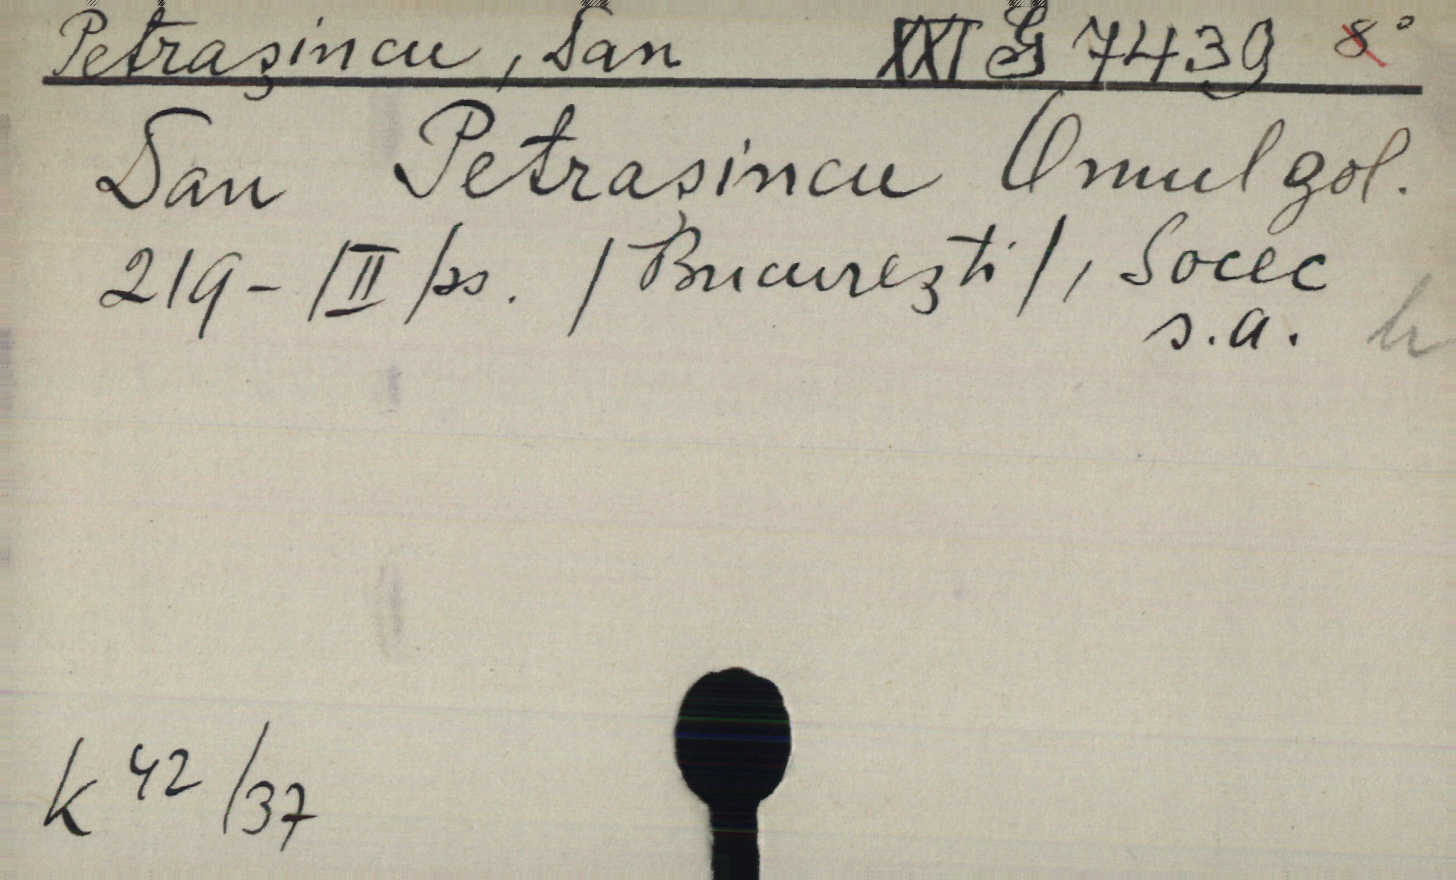 Petraşincu, Dan XXI G 7439 8°
Dan Petraşincu Omul gol.
219-/II/ss. /Bucureşti/, Socec
s.a. h
K 42/37